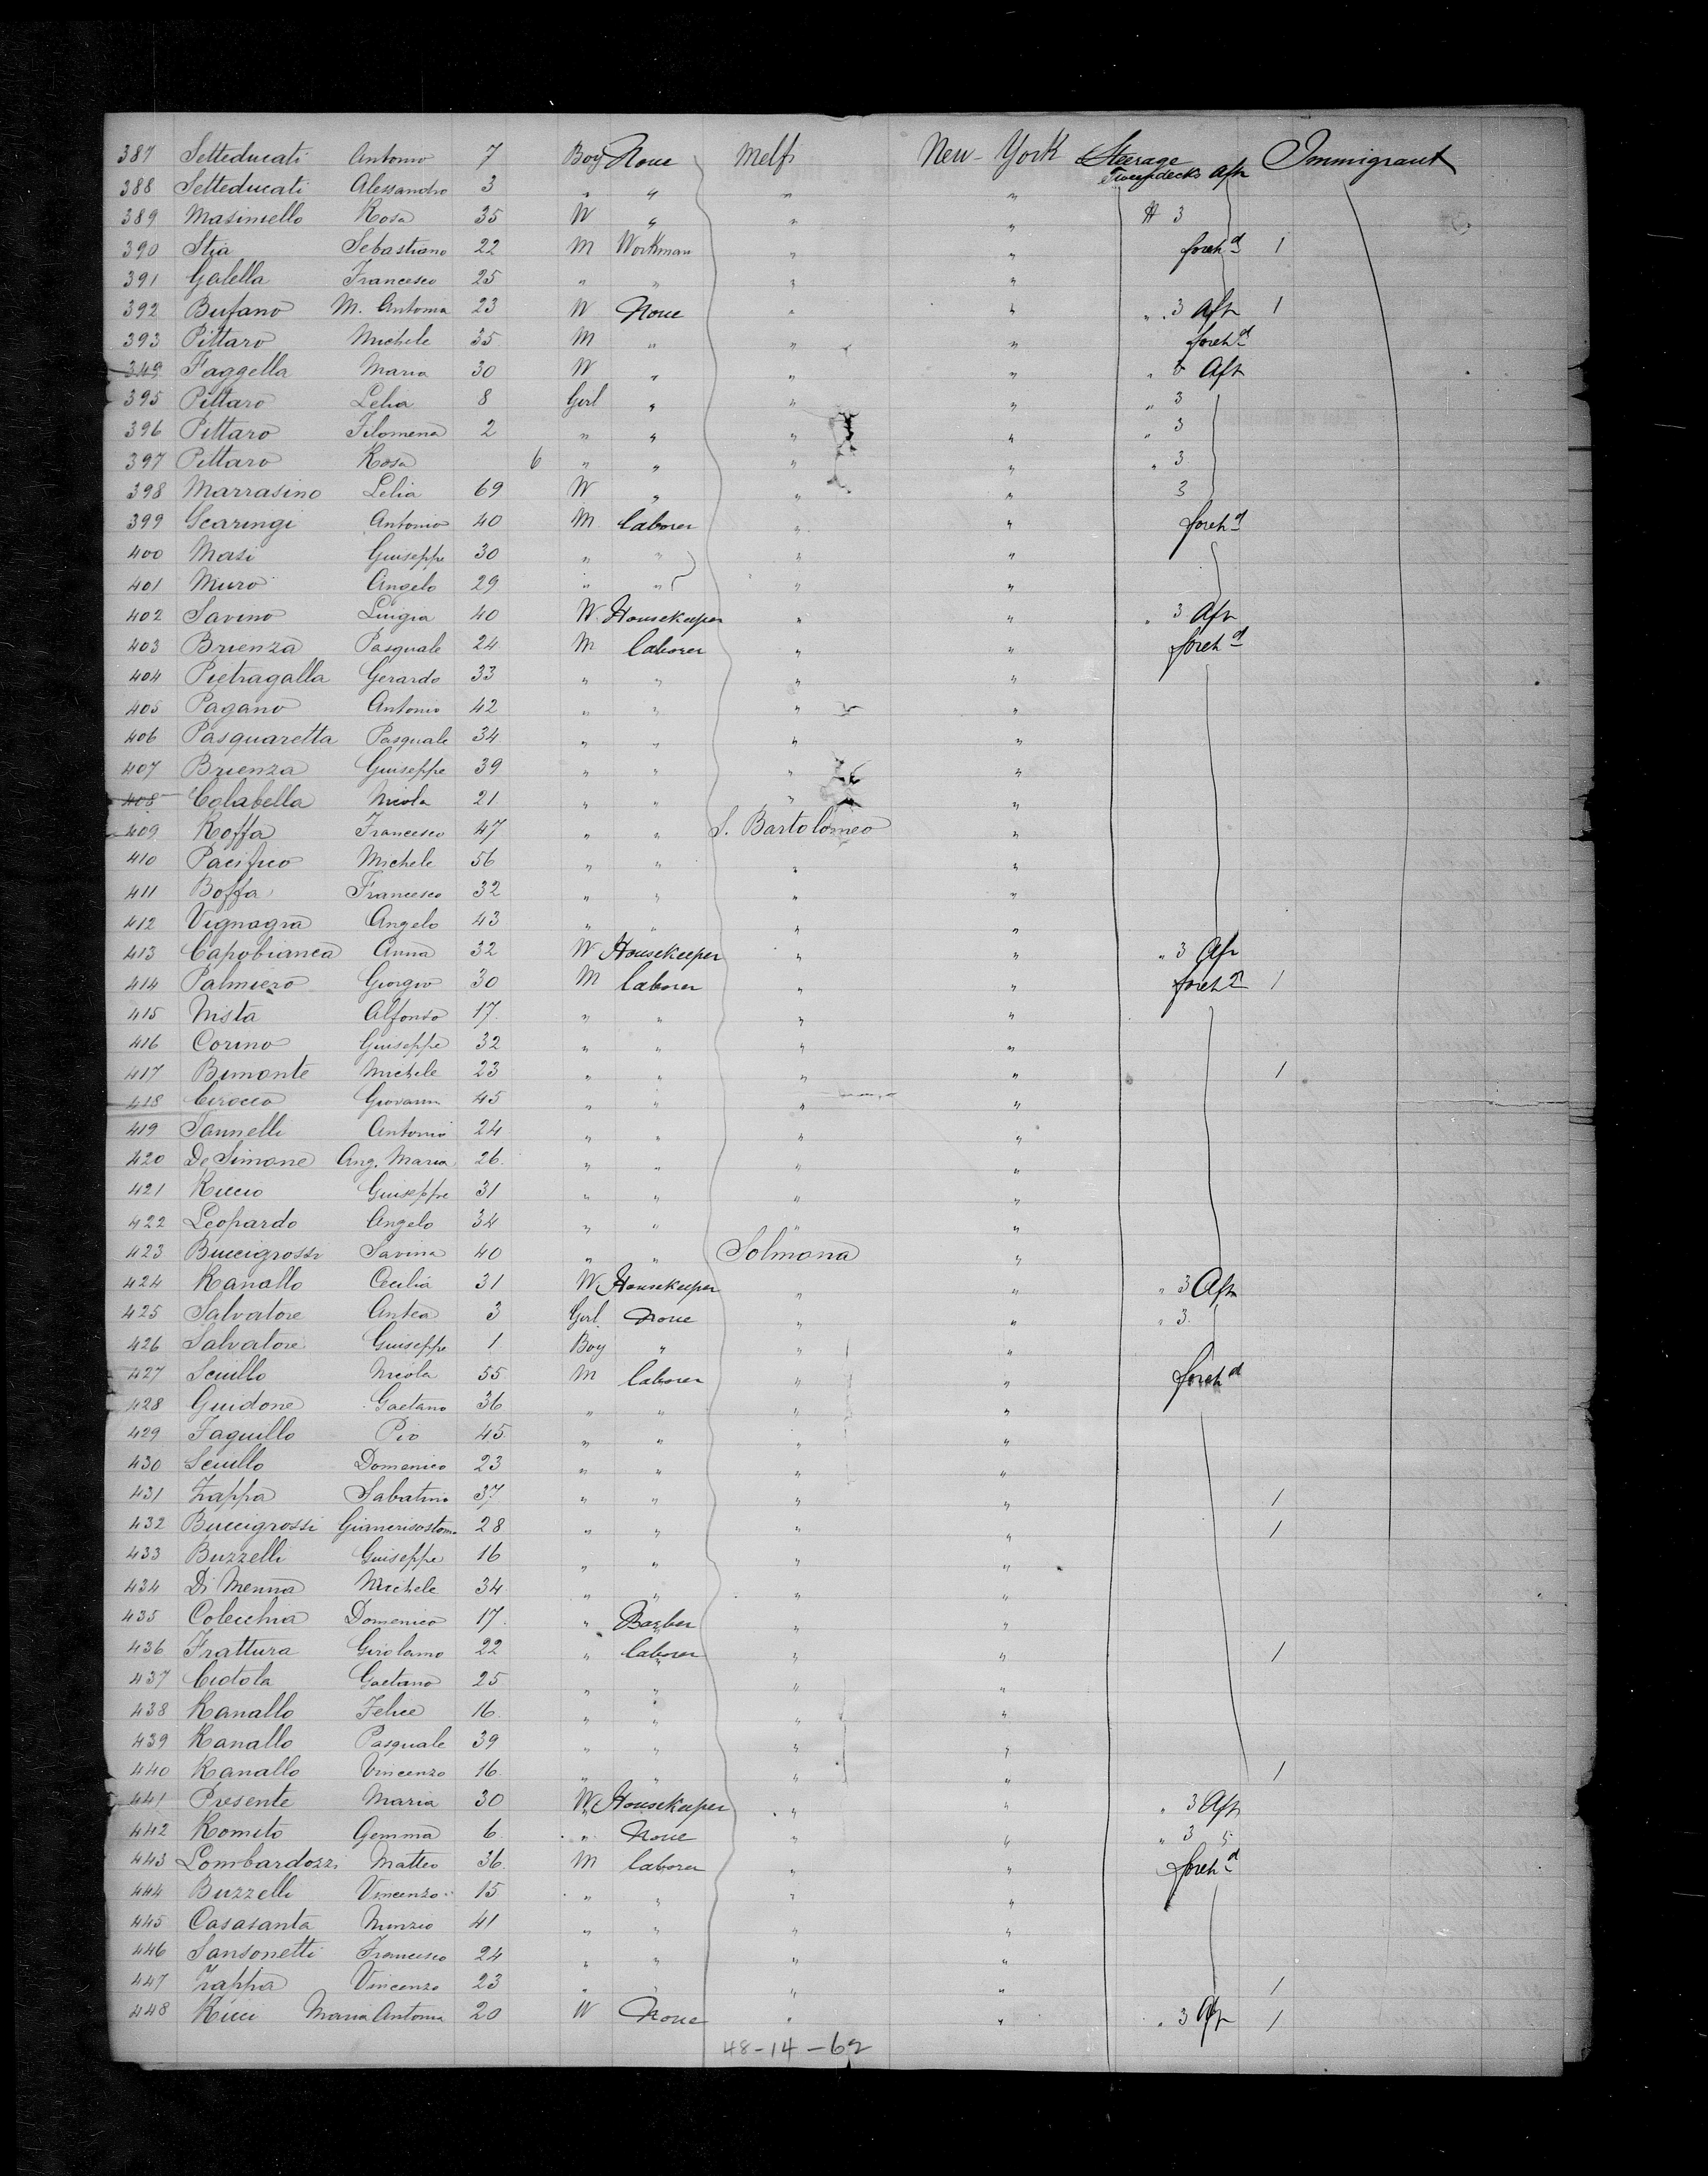 387 Setteducati Antonio 7 Boy None Melfi New-York Steerage Immigrant
Tweendecks Aft
388 Setteducati Alessandro 3 " " " "
389 Masiniello Rosa 35 W " " " # 3
390 Stia Sebastiano 22 M Workman " " foreh^d 1
391 Galella Francesco 25 " " " "
392 Bufano M. Antonia 23 W None " " " 3 Aft 1
393 Pittaro Michele 35 M " " " foreh^d
349 Faggella Maria 30 W " " " " Aft
395 Pittaro Lelia 8 Girl " " " " 3
396 Pittaro Filomena 2 " " " " " 3
397 Pittaro Rosa 6 " " " " " 3
398 Marrasino Lelia 69 W " " " 3
399 Scaringi Antonio 40 M laborer " " foreh^d
400 Masi Giuseppe 30 " " " "
401 Muro Angelo 29 " " " "
402 Savino Luigia 40 W Housekeeper " " " 3 Aft
403 Brienza Pasquale 24 M laborer " " foreh^d
404 Pietragalla Gerardo 33 " " " "
405 Pagano Antonio 42 " " " "
406 Pasquaretta Pasquale 34 " " " "
407 Brienza Giuseppe 39 " " " "
408 Colabella Nicola 21 " " " "
409 Roffa Francesco 47 " " S. Bartolomeo "
410 Pacifico Michele 56 " " " "
411 Boffa Francesco 32 " " " "
412 Vignagra Angelo 43 " " " "
413 Capobianca Anna 32 W Housekeeper " " " 3 Aft
414 Palmiero Giorgio 30 M laborer " " foreh^d 1
415 Nista Alfonso 17 " " " "
416 Corino Giuseppe 32 " " " "
417 Bimonte Michele 23 " " " " 1
418 Cirocco Giovanni 45 " " " "
419 Iannelli Antonio 24 " " " "
420 De Simone Ang. Maria 26 " " " "
421 Riccio Giuseppe 31 " " " "
422 Leopardo Angelo 34 " " " "
423 Buccigrossi Savina 40 " " Solmona "
424 Ranallo Cecilia 31 W Housekeeper " " " 3 Aft
425 Salvatore Antea 3 Girl None " " " 3
426 Salvatore Giuseppe 1 Boy " " "
427 Sciullo Nicola 55 M laborer " " foreh^d
428 Guidone Gaetano 36 " " " "
429 Iaquillo Pio 45 " " " "
430 Sciullo Domenico 23 " " " "
431 Zappa Sabatino 37 " " " " 1
432 Buccigrossi Giancrisostomo 28 " " " " 1
433 Buzzelli Giuseppe 16 " " " "
434 Di Menna Michele 34 " " " "
435 Colecchia Domenico 17 " Barber " "
436 Frattura Girolamo 22 " laborer " " 1
437 Ciotola Gaetano 25 " " " "
438 Ranallo Felice 16 " " " "
439 Ranallo Pasquale 39 " " " "
440 Ranallo Vincenzo 16 " " " " 1
441 Presente Maria 30 W Housekeeper " " " 3 Aft
442 Romito Gemma 6 " None " " " 3 "
443 Lombardozzi Matteo 36 M laborer " " foreh^d
444 Buzzelli Vincenzo 15 " " " "
445 Casasanta Nunzio 41 " " " "
446 Sansonetti Francesco 24 " " " "
447 Zappa Vincenzo 23 " " " " 1
448 Ricci Maria Antonia 20 W None " " " 3 Aft 1
48-14-62